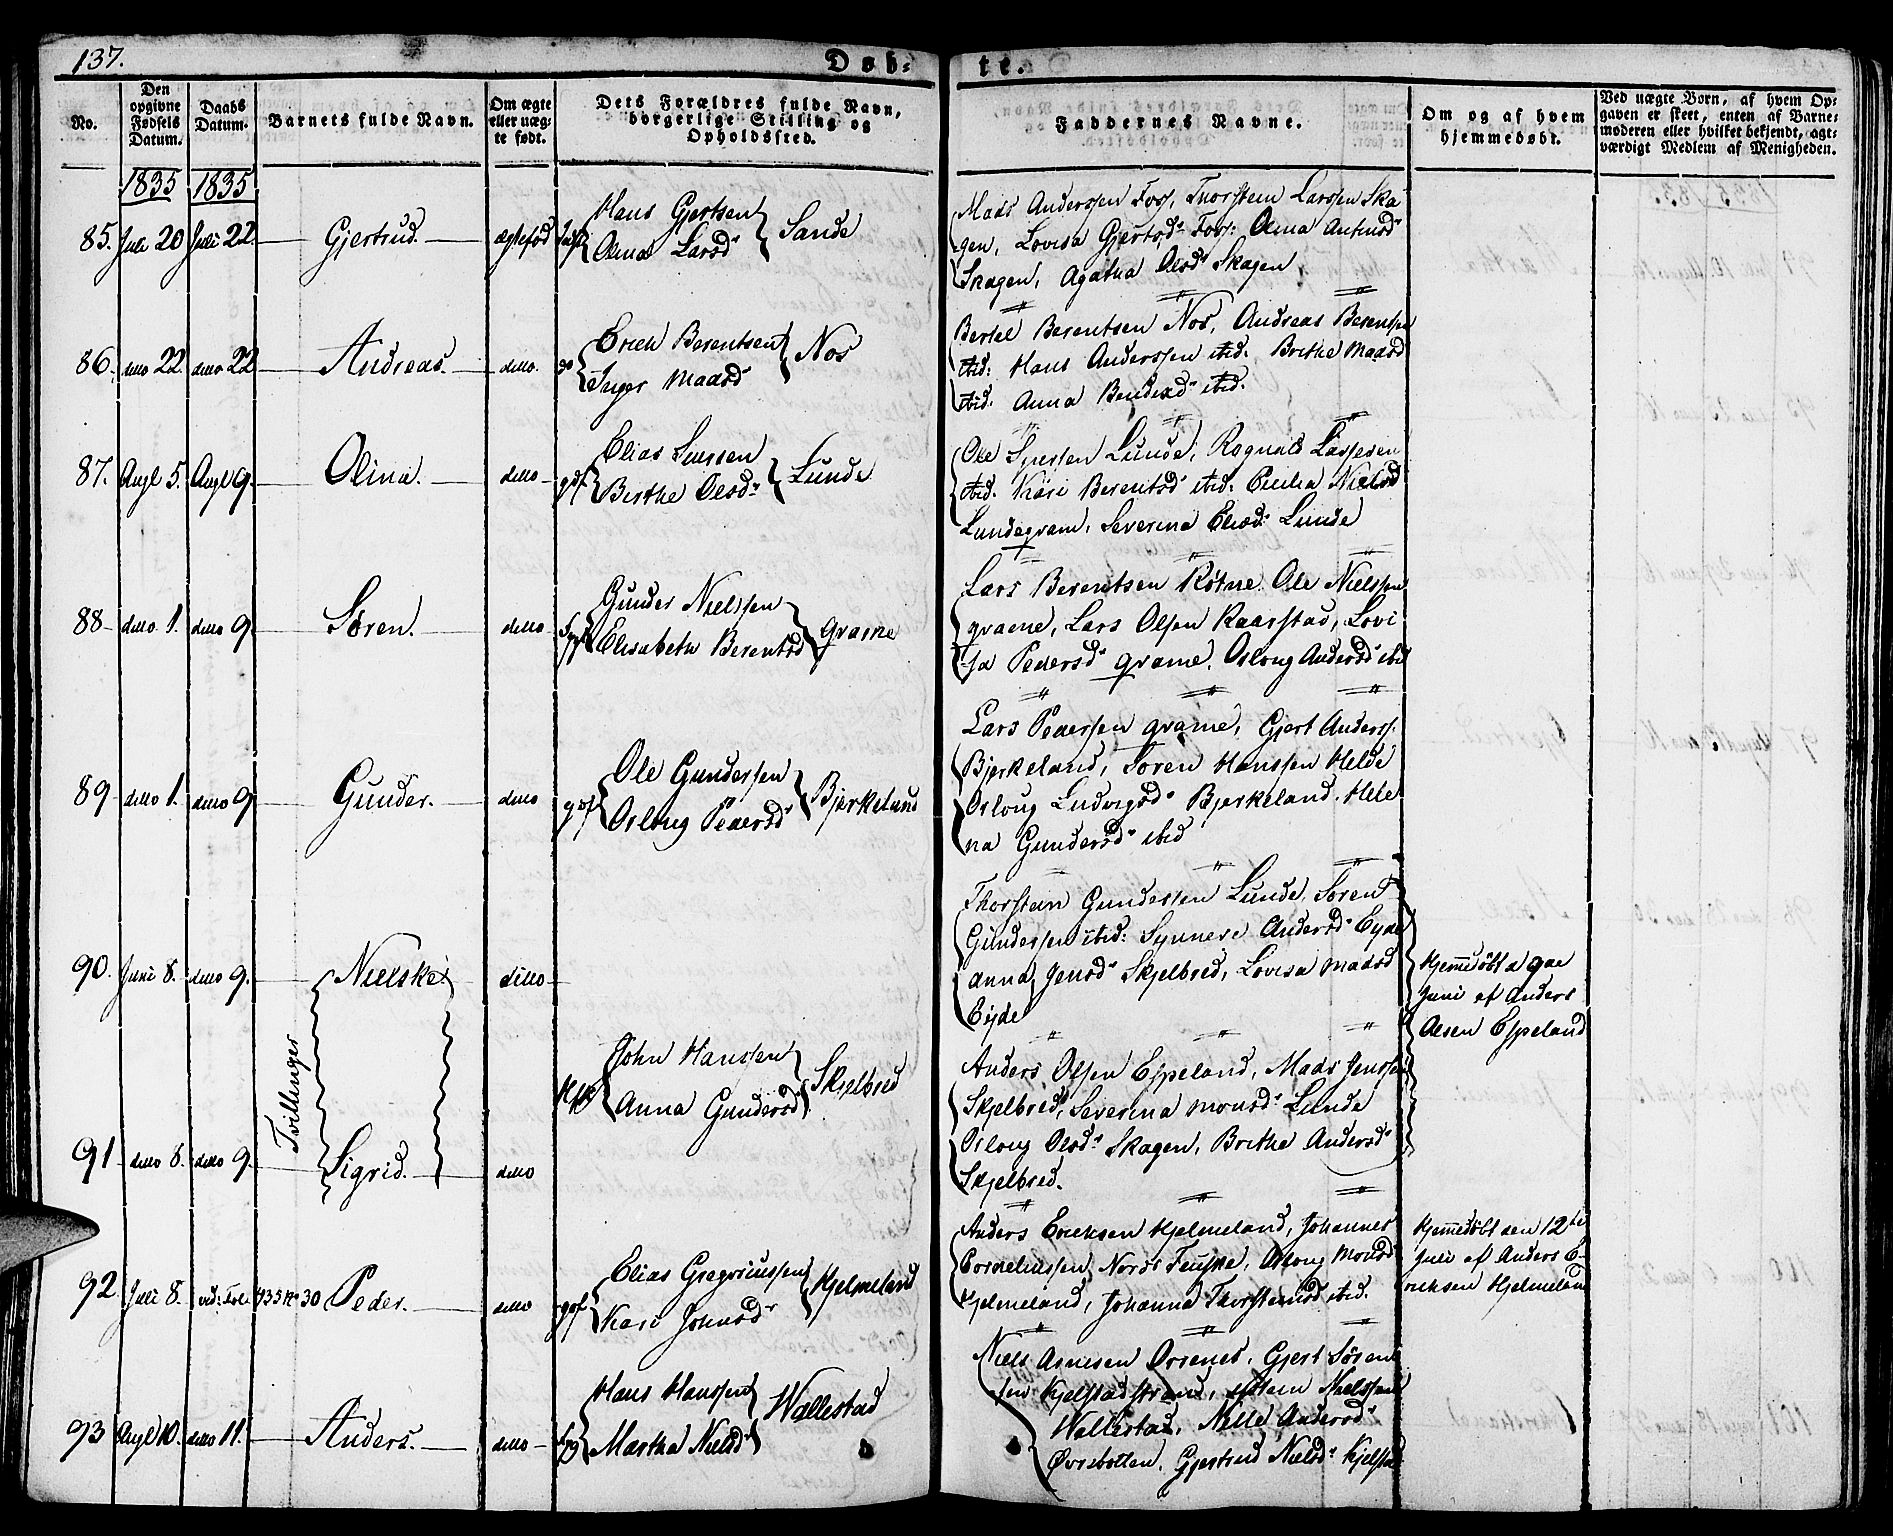 137.
Døb-
te.
No.
Den opgivne Fødsels Datum.
Daabs Datum.
Barnets fulde Navn.
Om ægte eller uægte født.
Dets Forældres fulde Navn, borgerlige Stilling og Opholdssted.
Faddernes Navne.
Om og af hvem hjemmedøbt.
Ved uægte Børn, af hvem Opgaven er skeet, enten af Barnemoderen eller hvilket bekjendt, agtværdigt Medlem af Menigheden.
1835 1835
85. Juli 20 Juli 22. Gjertrud. ægtefød
Hans Gjertsen
Olina Larsd
Sande
Mads Anderssen Foss, Thorstein Larssen Ska
gen, Lovisa Gjertsd Foss: Olina
Skagen, Agatha Olsd Skagen
86. ditto 22. ditto 22 Andreas. ditto.
Erich Berentsen
Inger Madsd
Nos
Bertel Berentsen Nos, Andreas Berentsen
ibid: Hans Anderssen ibid. Brithe Madsd
ibid. Anna ibid.
87. Augt 5. Augt 9. Olina. ditto
Elias
Berthe Olsd
Lunde
Ole Lunde, Rognald
ibid. Kari Berentsd ibid. Cicilia Nielsd
Lundegram, Severina Eliasd: Lunde
88 ditto 1. ditto 9. Søren. ditto
Gunder Nielssen
Elisabeth Berentsd
grame
Lars Berentsen Ole Nielssen
grame, Lars Olsen Kaarstad, Lovi
sa Pedersd grame. Osloug Andersd ibid
89 ditto 1. ditto 9 Gunder. ditto
Ole Gunderssen
Osloug Pedersd
Bjerkeland
Lars Pederssen grame, Gjert Anderss.
Bjerkeland, Søren Hanssen Helde
Osloug Ludvigsd Bjerkeland. Hele
na Gundersd ibid
90. Juni 8. ditto 9. Nielske. ditto
Thorstein Gunderssen Lunde, Søren
Gunderssen ibid: Synneve Andersd Eyde
Anna Jensd Skjelbred, Lovisa Madsd
Eyde
Hjemmedøbt a 9de
Juni af Anders
Olsen Espeland
Tvillinger
John Hanssen
Anna Gundersd
Skjelbred
Anders Olsen Espeland, Mads Jenssen
Skjelbred, Severina Monsd: Lunde
Osloug Olsd: Skagen, Brithe Andersd
Skjelbred.
91 ditto 8. ditto 9. Sigrid. ditto
92. Juli 8. 30 Peder. ditto
Elias Gregoriussen
Kari Johnsd
Hjelmeland
Anders Ericksen Hjelmeland, Johannes
Corneliussen Osloug Monsd
Hjelmeland, Johanna Thorsteinsd ibid.
Hjemmedøbt den 12te
Juli af Anders E-
ricksen Hjelmeland
93 Augt 10. ditto 11. Anders. ditto
Hans Hanssen
Martha Nielsd
Wallestad
Niels Gjert Søren
sen Kjelstad Nielssen
Wallestad, Nille Andersd
Øvrebotten. Gjertrud Nielsd Kjelstad